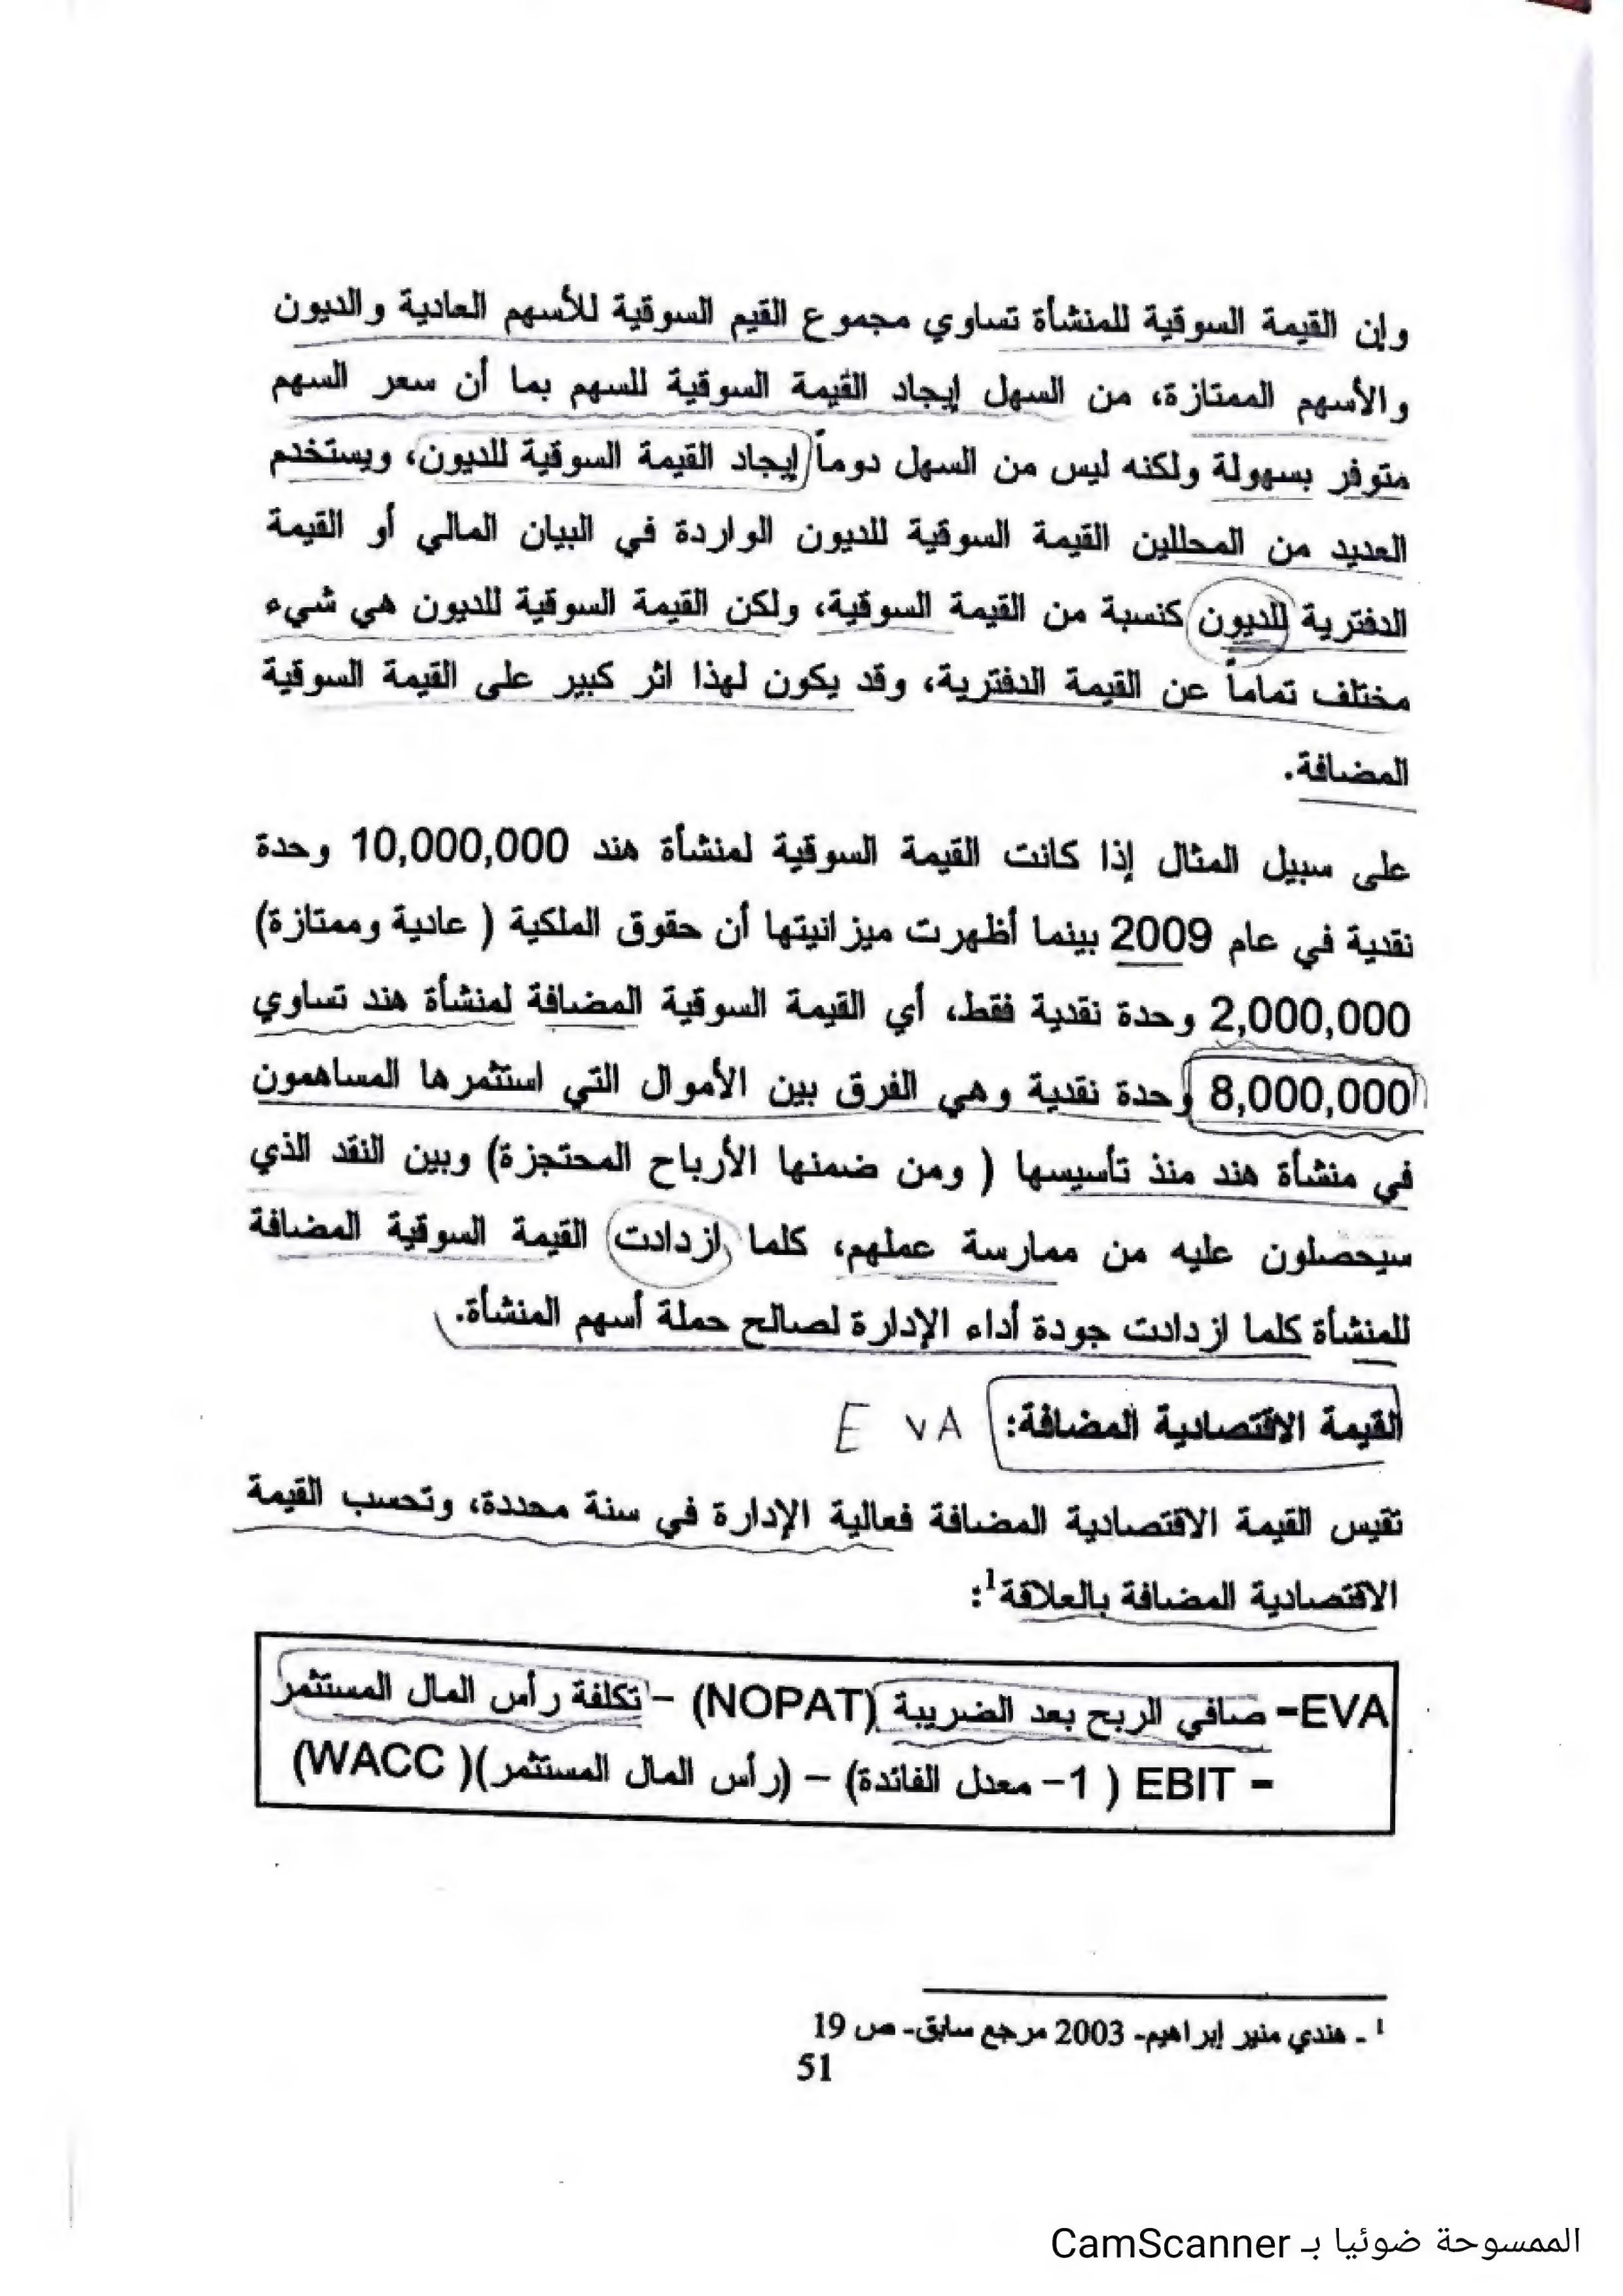 وإن القيمة السوقية للمنشأة تساوي مجموع القيم السوقية للأسهم العادية والديون
والأسهم الممتازة، من السهل إيجاد القيمة السوقية للسهم بما أن سعر السهم
متوفر بسهولة ولكنه ليس من السهل دوماً إيجاد القيمة السوقية للديون، ويستخدم
العديد من المحللين القيمة السوقية للديون الواردة في البيان المالي أو القيمة
الدفترية للديون كنسبة من القيمة السوقية، ولكن القيمة السوقية للديون هي شيء
مختلف تماماً عن القيمة الدفترية، وقد يكون لهذا اثر كبير على القيمة السوقية
المضافة.
على سبيل المثال إذا كانت القيمة السوقية لمنشأة هند 10,000,000 وحدة
نقدية في عام 2009 بينما أظهرت ميزانيتها أن حقوق الملكية ( عادية وممتازة)
2,000,000 وحدة نقدية فقط، أي القيمة السوقية المضافة لمنشأة هند تساوي
8,000,000 وحدة نقدية وهي الفرق بين الأموال التي استثمرها المساهمون
في منشأة هند منذ تأسيسها ( ومن ضمنها الأرباح المحتجزة) وبين النقد الذي
سيحصلون عليه من ممارسة عملهم، كلما ازدادت القيمة السوقية المضافة
للمنشأة كلما ازدادت جودة أداء الإدارة لصالح حملة أسهم المنشأة.
القيمة الاقتصادية المضافة: E VA
تقيس القيمة الاقتصادية المضافة فعالية الإدارة في سنة محددة، وتحسب القيمة
الاقتصادية المضافة بالعلاقة1:
EVA- صافي الربح بعد الضريبة (NOPAT) – تكلفة رأس المال المستثمر
- EBIT ( 1– معدل الفائدة) – (رأس المال المستثمر)( WACC)
1 - هندي منير إبراهيم- 2003 مرجع سابق- ص 19
51
الممسوحة ضوئيا بـ CamScanner